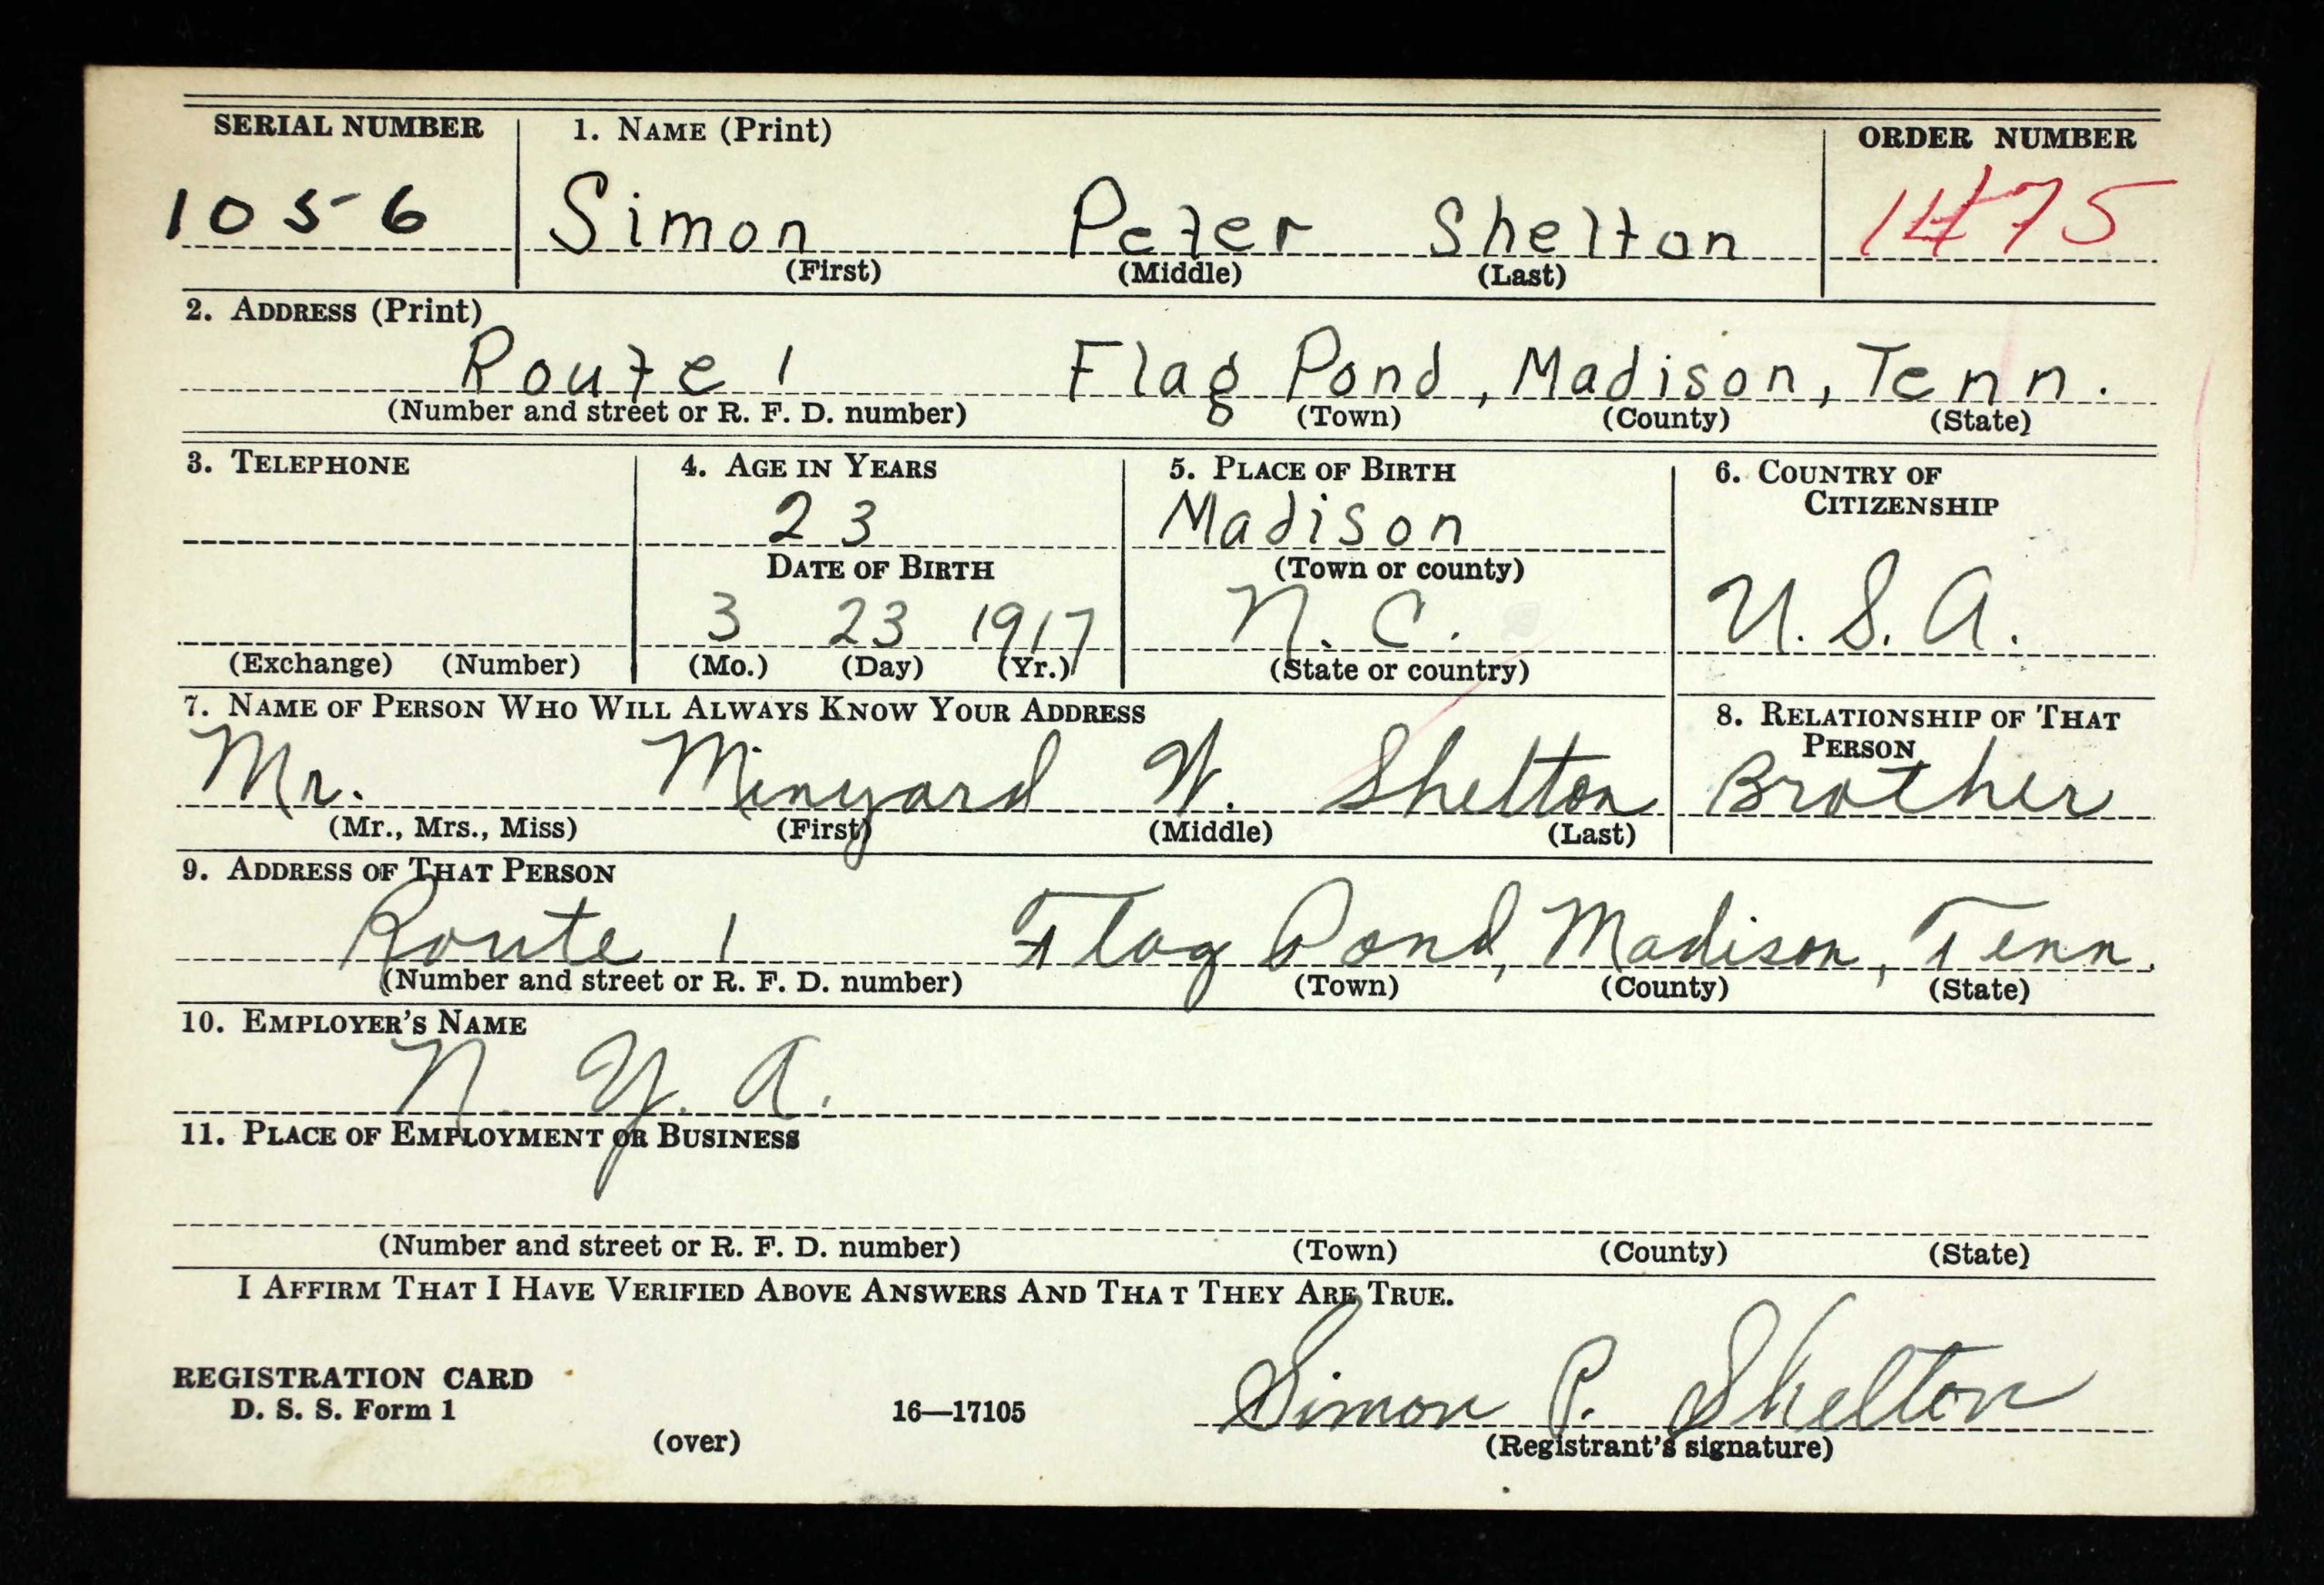 SERIAL NUMBER 1. NAME (Print) ORDER NUMBER
1056 Simon Peter Shelton 1475
(First) (Middle) (Last)
2. ADDRESS (Print)
Route 1 Flag Pond, Madison, Tenn.
(Number and street or R. F. D. number) (Town) (County) (State)
3. TELEPHONE 4. AGE IN YEARS 5. PLACE OF BIRTH 6. COUNTRY OF
CITIZENSHIP
23 Madison
DATE OF BIRTH (Town or county)
3 23 1917 N. C. U. S. A.
(Exchange) (Number) (Mo.) (Day) (Yr.) (State or country)
7. NAME OF PERSON WHO WILL ALWAYS KNOW YOUR ADDRESS 8. RELATIONSHIP OF THAT
PERSON
Mr. Minyard W. Shelton Brother
(Mr., Mrs., Miss) (First) (Middle) (Last)
9. ADDRESS OF THAT PERSON
Route 1 Flag Pond, Madison, Tenn.
(Number and street or R. F. D. number) (Town) (County) (State)
10. EMPLOYER'S NAME
N. Y. A.
11. PLACE OF EMPLOYMENT OR BUSINESS
(Number and street or R. F. D. number) (Town) (County) (State)
I AFFIRM THAT I HAVE VERIFIED ABOVE ANSWERS AND THAT THEY ARE TRUE.
REGISTRATION CARD
D. S. S. Form 1 16—17105 Simon P. Shelton
(over) (Registrant's signature)